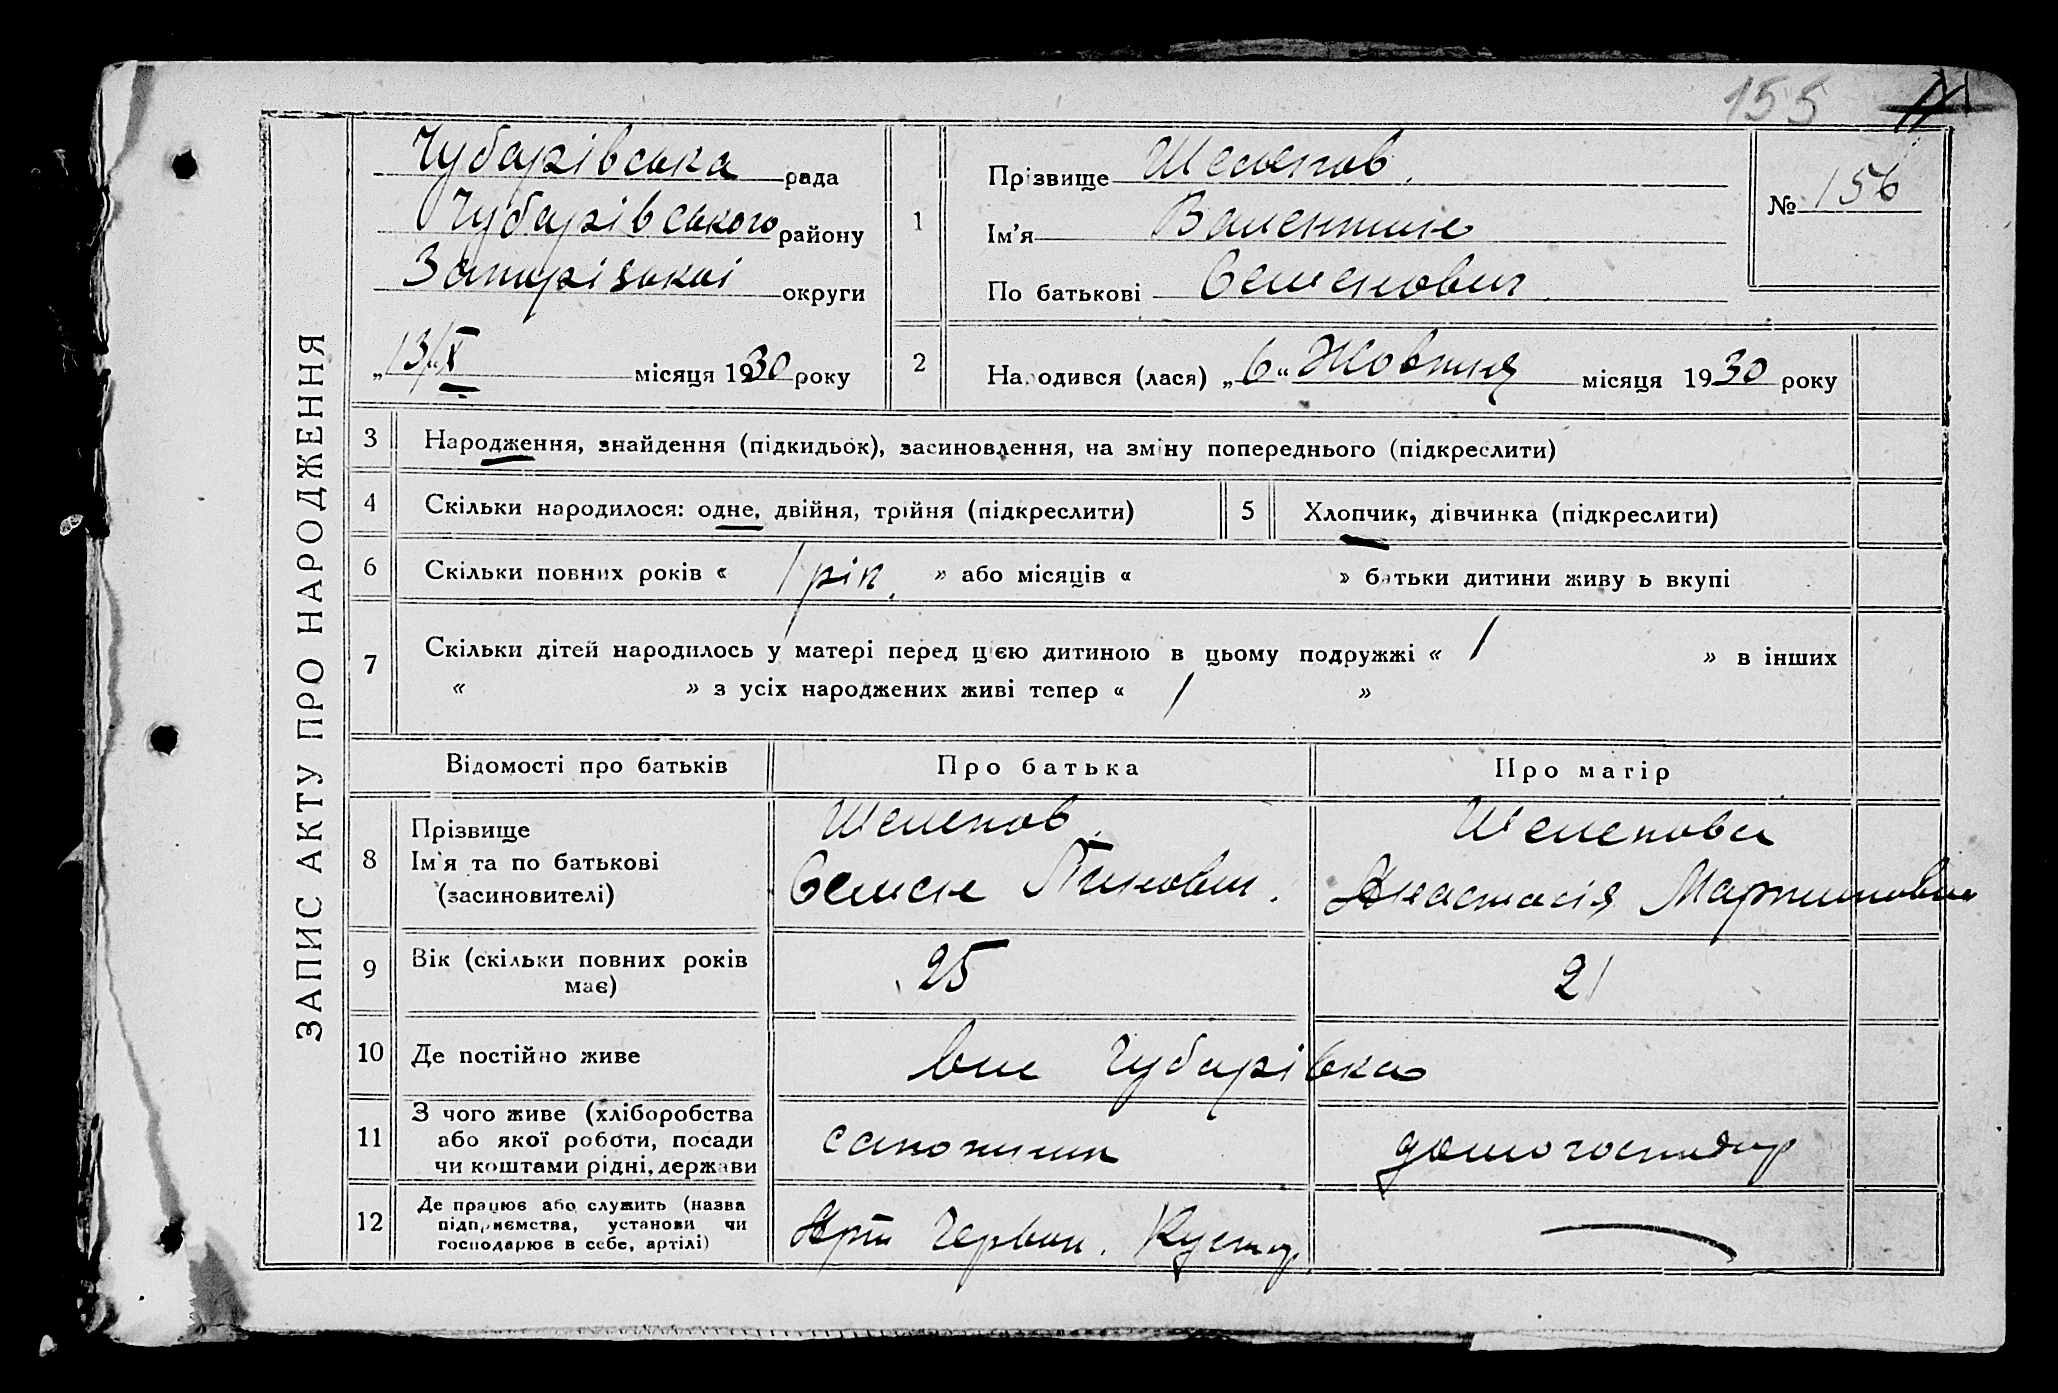 155
ЗАПИС АКТУ ПРО НАРОДЖЕННЯ
Чубарівська рада
Чубарівського району
Запорізької округи
„13/X місяця 1930 року
1
Прізвище Шелепов
Ім'я Валентин
По батькові Семенович
№ 156
2
Народився (лася) „6“ Жовтня місяця 1930 року
3 Народження, знайдення (підкидьок), засиновлення, на зміну попереднього (підкреслити)
4 Скільки народилося: одне, двійня, трійня (підкреслити)
5 Хлопчик, дівчинка (підкреслити)
6 Скільки повних років « 1 рік » або місяців « » батьки дитини живуть вкупі
7 Скільки дітей народилось у матері перед цією дитиною в цьому подружжі « 1 » в інших
« » з усіх народжених живі тепер « 1 »
Відомості про батьків Про батька Про матір
8 Прізвище
Ім'я та по батькові
(засиновителі)
Шелепов
Семен
Шелепова
Анастасія Мартиновна
9 Вік (скільки повних років
має)
25
21
10 Де постійно живе
Чубарівка
11 З чого живе (хліборобства
або якої роботи, посади
чи коштами рідні, держави
сапожник
домогосподар
12 Де працює або служить (назва
підприємства, установи чи
господарює в себе, артілі)
Арт. Червон. Кустар